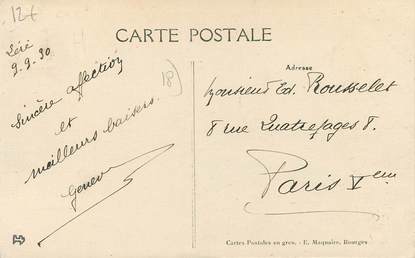 12+
CARTE POSTALE
Léré
9.9.30.
Sincère affection
et
meilleurs baisers.
Genev
18)
Adresse
Monsieur Ed. Rousselet
8 rue Quatrefages 8.
Paris V em
Cartes Postales en gros. - E. Maquaire, Bourges